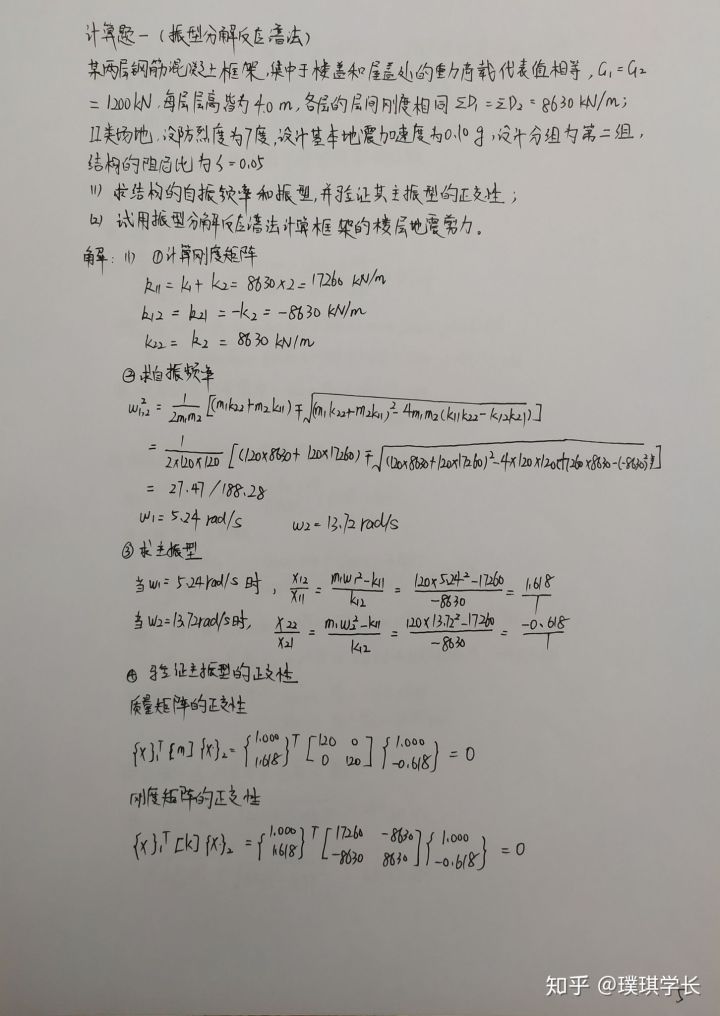 计算题一（振型分解反应谱法）
某两层钢筋混凝土框架，集中于楼盖和屋盖处的重力荷载代表值相等，G₁=G₂
=1200kN，每层层高皆为4.0m，各层的层间刚度相同ΣD₁=ΣD₂=8630kN/m；
II类场地，设防烈度为7度，设计基本地震加速度为0.10g，设计分组为第二组，
结构的阻尼比为ζ=0.05
(1) 求结构的自振频率和振型，并验证其主振型的正交性；
(2) 试用振型分解反应谱法计算框架的楼层地震剪力。
解：(1) ①计算刚度矩阵
k₁₁=k₁+k₂=8630×2=17260 kN/m
k₁₂=k₂₁=-k₂=-8630 kN/m
k₂₂=k₂=8630 kN/m
②求自振频率
w²₁,₂=1/(2m₁m₂)[(m₁k₂₂+m₂k₁₁)∓√((m₁k₂₂+m₂k₁₁)²-4m₁m₂(k₁₁k₂₂-k₁₂k₂₁))]
=1/(2×120×120)[(120×8630+120×17260)∓√((120×8630+120×17260)²-4×120×120×[17260×8630-(-8630)²])]
=27.47/188.28
w₁=5.24 rad/s w₂=13.72 rad/s
③求主振型
当w₁=5.24rad/s时，x₁₂/x₁₁=(m₁w₁²-k₁₁)/k₁₂=(120×5.24²-17260)/-8630=1.618/1
当w₂=13.72rad/s时，x₂₂/x₂₁=(m₁w₂²-k₁₁)/k₁₂=(120×13.72²-17260)/-8630=-0.618/1
④验证主振型的正交性
质量矩阵的正交性
{x}₁ᵀ[m]{x}₂={1.000 1.618}ᵀ[120 0 0 120]{1.000 -0.618}=0
刚度矩阵的正交性
{x}₁ᵀ[k]{x}₂={1.000 1.618}ᵀ[17260 -8630 -8630 8630]{1.000 -0.618}=0
知乎 @璞琪学长
5